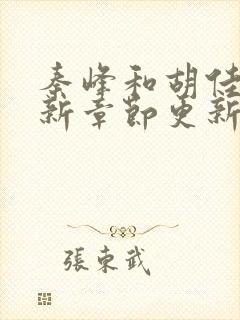 秦峰和胡佳
新章節更新
張東武